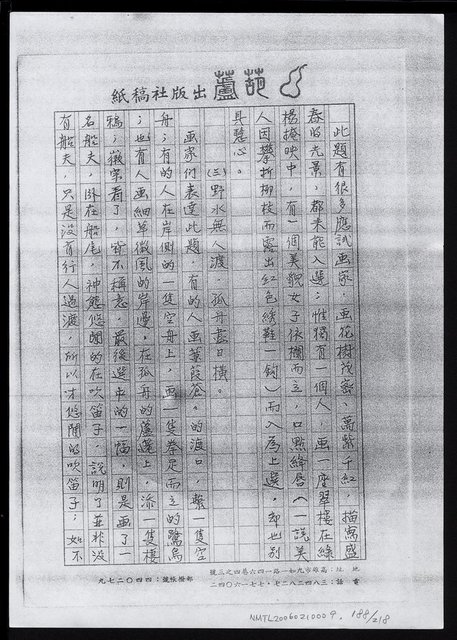 葫蘆出版社稿紙
此題有很多應試画家，画花樹茂密、萬紫千紅，描寫盛
春的光景，都未能入選；惟獨有一個人，画一座翠樓在綠
楊掩映中，有一個美貌女子依欄而立，口點絳唇（一說美
人因攀折柳枝而露出紅色綉鞋一鈎）而入為上選，却也別
具慧心。
（三）野水無人渡，孤舟盡日橫。
画家們表達此題，有的人画葉葭蒼。的渡口，繫一隻空
舟；有的人在岸側的一隻空舟上，画一隻拳足而立的鷺鳥
；也有人画細草微風的岸邊，在孤舟的蓬邊上，添一隻棲
鴉；徽宗看了，皆不稱意，最後選中的一幅，則是画了一
名船夫，臥在船尾，神態悠閒的在吹笛子，說明了並非沒
有船夫，只是沒有行人過渡，所以才悠閒的吹笛子；如不
地址：高雄市九如一路一四六巷四之三號
電話：三八四三二八二七．七七一六〇四二
郵撥帳號：四四〇二七九
NMTL20060210009. 188/218